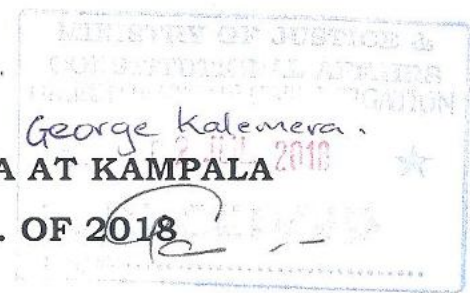 MINISTRY OF JUSTICE &
CONSTITUTIONAL AFFAIRS
George Kalemera.
A AT KAMPALA
JUL 2018
. OF 2018